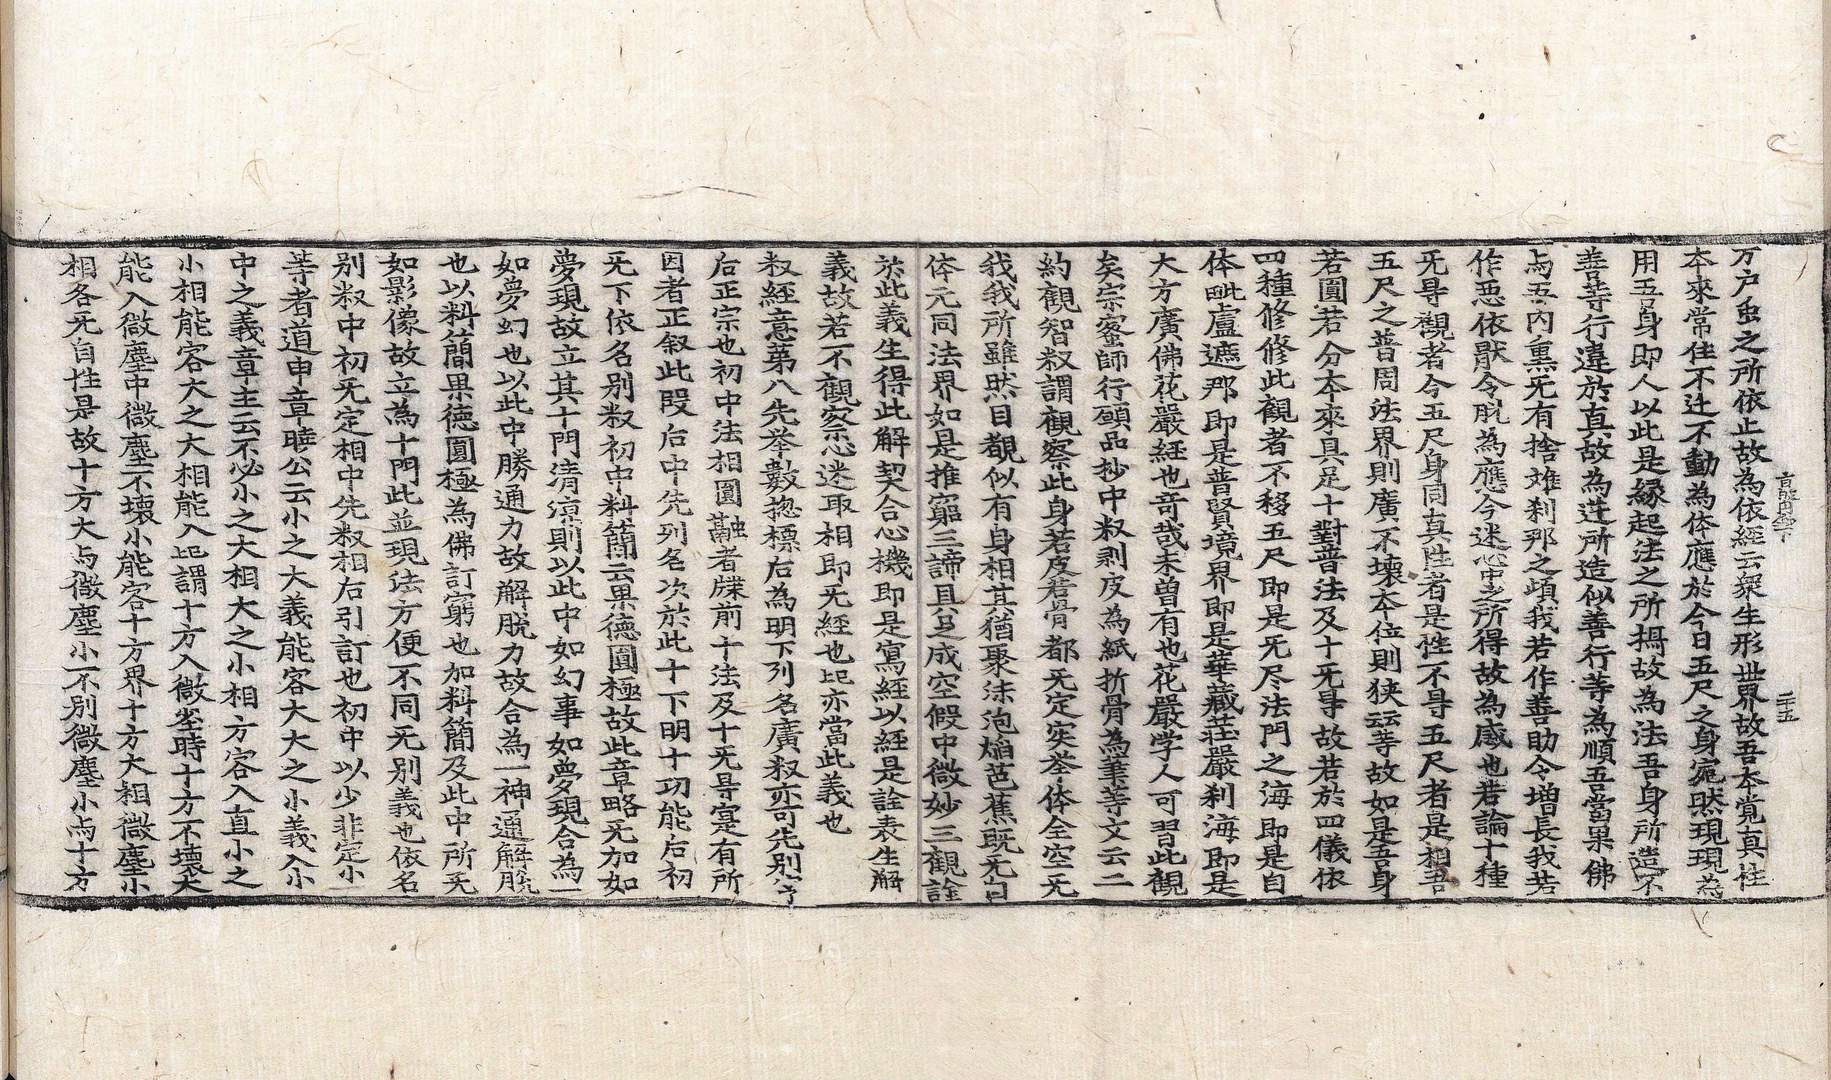 万户虫之所依止故為依經云衆生形世界故吾本覚真性
本來常住不迁不動為体應於今日五尺之身宛然現現為
用五身即人以此是縁起法之所搆故為法吾身所造不
善等行違於直故為逆所造似善行等為順吾當果佛
与吾内熏旡有捨離刹那之頃我若作善助令增長我若
作恶依猒令脱為應今迷心中之所得故為感也若論十種
旡㝵觀者今五尺身同真性者是性不㝵五尺者是相吾
五尺之普周法界則廣不壊本位則狭云等故如是吾身
若圓若分本來具足十對普法及十旡㝵故若於四儀依
四種修修此觀者不移五尺即是旡尽法門之海即是自
体毗盧遮那即是普賢境界即是華藏莊嚴刹海即是
大方廣佛花嚴經也竒㢤未曽有也花嚴学人可習此觀
矣宗蜜師行願品抄中叙剥皮為紙折骨為筆等文云二
約觀智叙謂觀察此身若皮若骨都旡定实荃体全空旡
我我所雖然目覩似有身相其猶聚沫泡焔芭蕉既旡自
体元同法界如是推窮三諦具足成空假中微妙三觀詮
於此義生得此解契合心機即是寫經以經是詮表生解
義故若不觀察心迷取相即旡經也此亦當此義也
叙經意第八先举數揔標后為明下列名廣叙亦可先别序
后正宗也初中法相圓融者牒前十法及十旡㝵寔有所
因者正叙此叚后中先列名次於此十下明十功能后初
旡下依名别叙初中料簡云果德圓極故此章略旡加如
夢現故立其十門清凉則以此中如幻事如夢現合為一
如夢幻也以此中勝通力故解脱力故合為一神通解脱
也以料簡果德圓極為佛訂窮也加料簡及此中所旡
如影像故立為十門此並現法方便不同旡别義也依名
别叙中初旡定相中先叙相后引訂也初中以少非定小
等者道申章曉公云小之大義能客大大之小義入小
中之義章主云不必小之大相大之小相方客入直小之
小相能容大之大相能入此謂十方入微塵時十方不壊大
能入微塵中微塵不壊小能容十方界十方大相微塵小
相各旡自性是故十方大与微塵小不别微塵小与十方
二十五